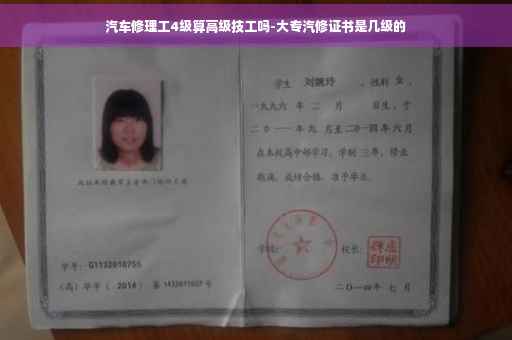 汽车修理工4级算高级技工吗-大专汽修证书是几级的
学生 刘婉玲 ，性别 女 ，
一九九六 年 二 月 日生，于
二〇一一年九 月至二〇一四年六月
在本校高中部学习，学制 三年，修业
期满，成绩合格，准予毕业。
学校： 校长：
学号：G1132010755
（高）毕字（ 2014 ）第 1432011607 号
二〇一四年 七 月